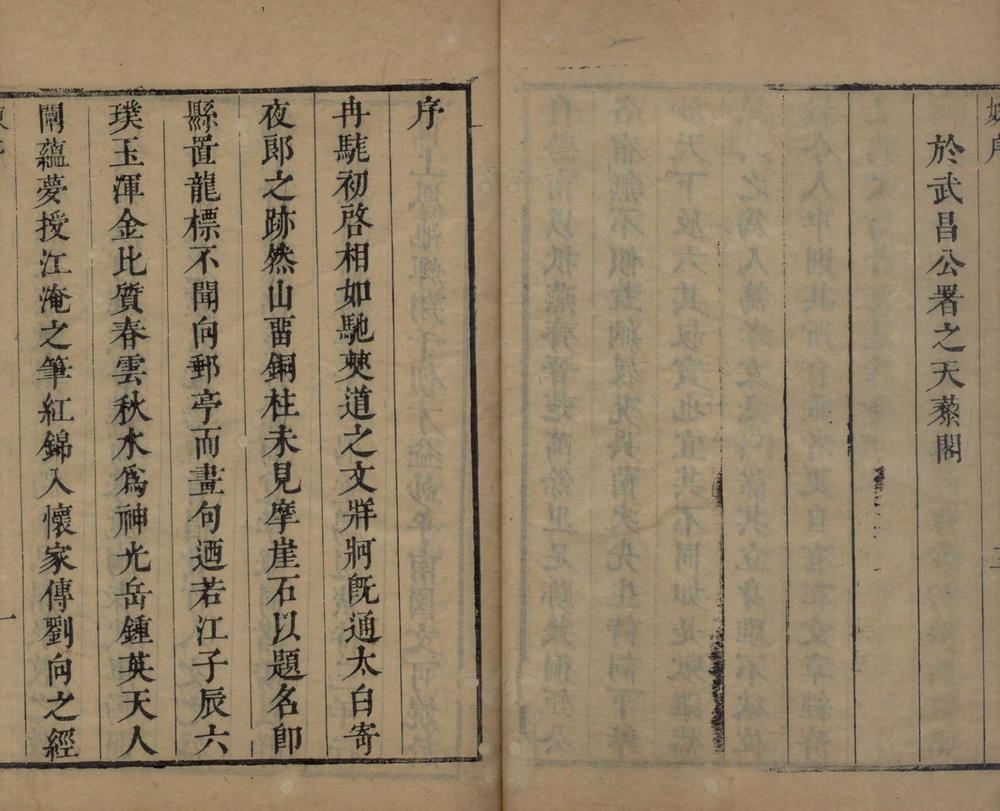 於武昌公署之天蘂閣
序
冉駹初啓相如馳僰道之文牂牁旣通太白寄
夜郎之跡然山畱銅柱未見摩崖石以題名卽
縣置龍標不聞向郵亭而畫句迺若江子辰六
璞玉渾金比質春雲秋水爲神光岳鍾英天人
闡蘊夢授江淹之筆紅錦入懷家傳劉向之經
一